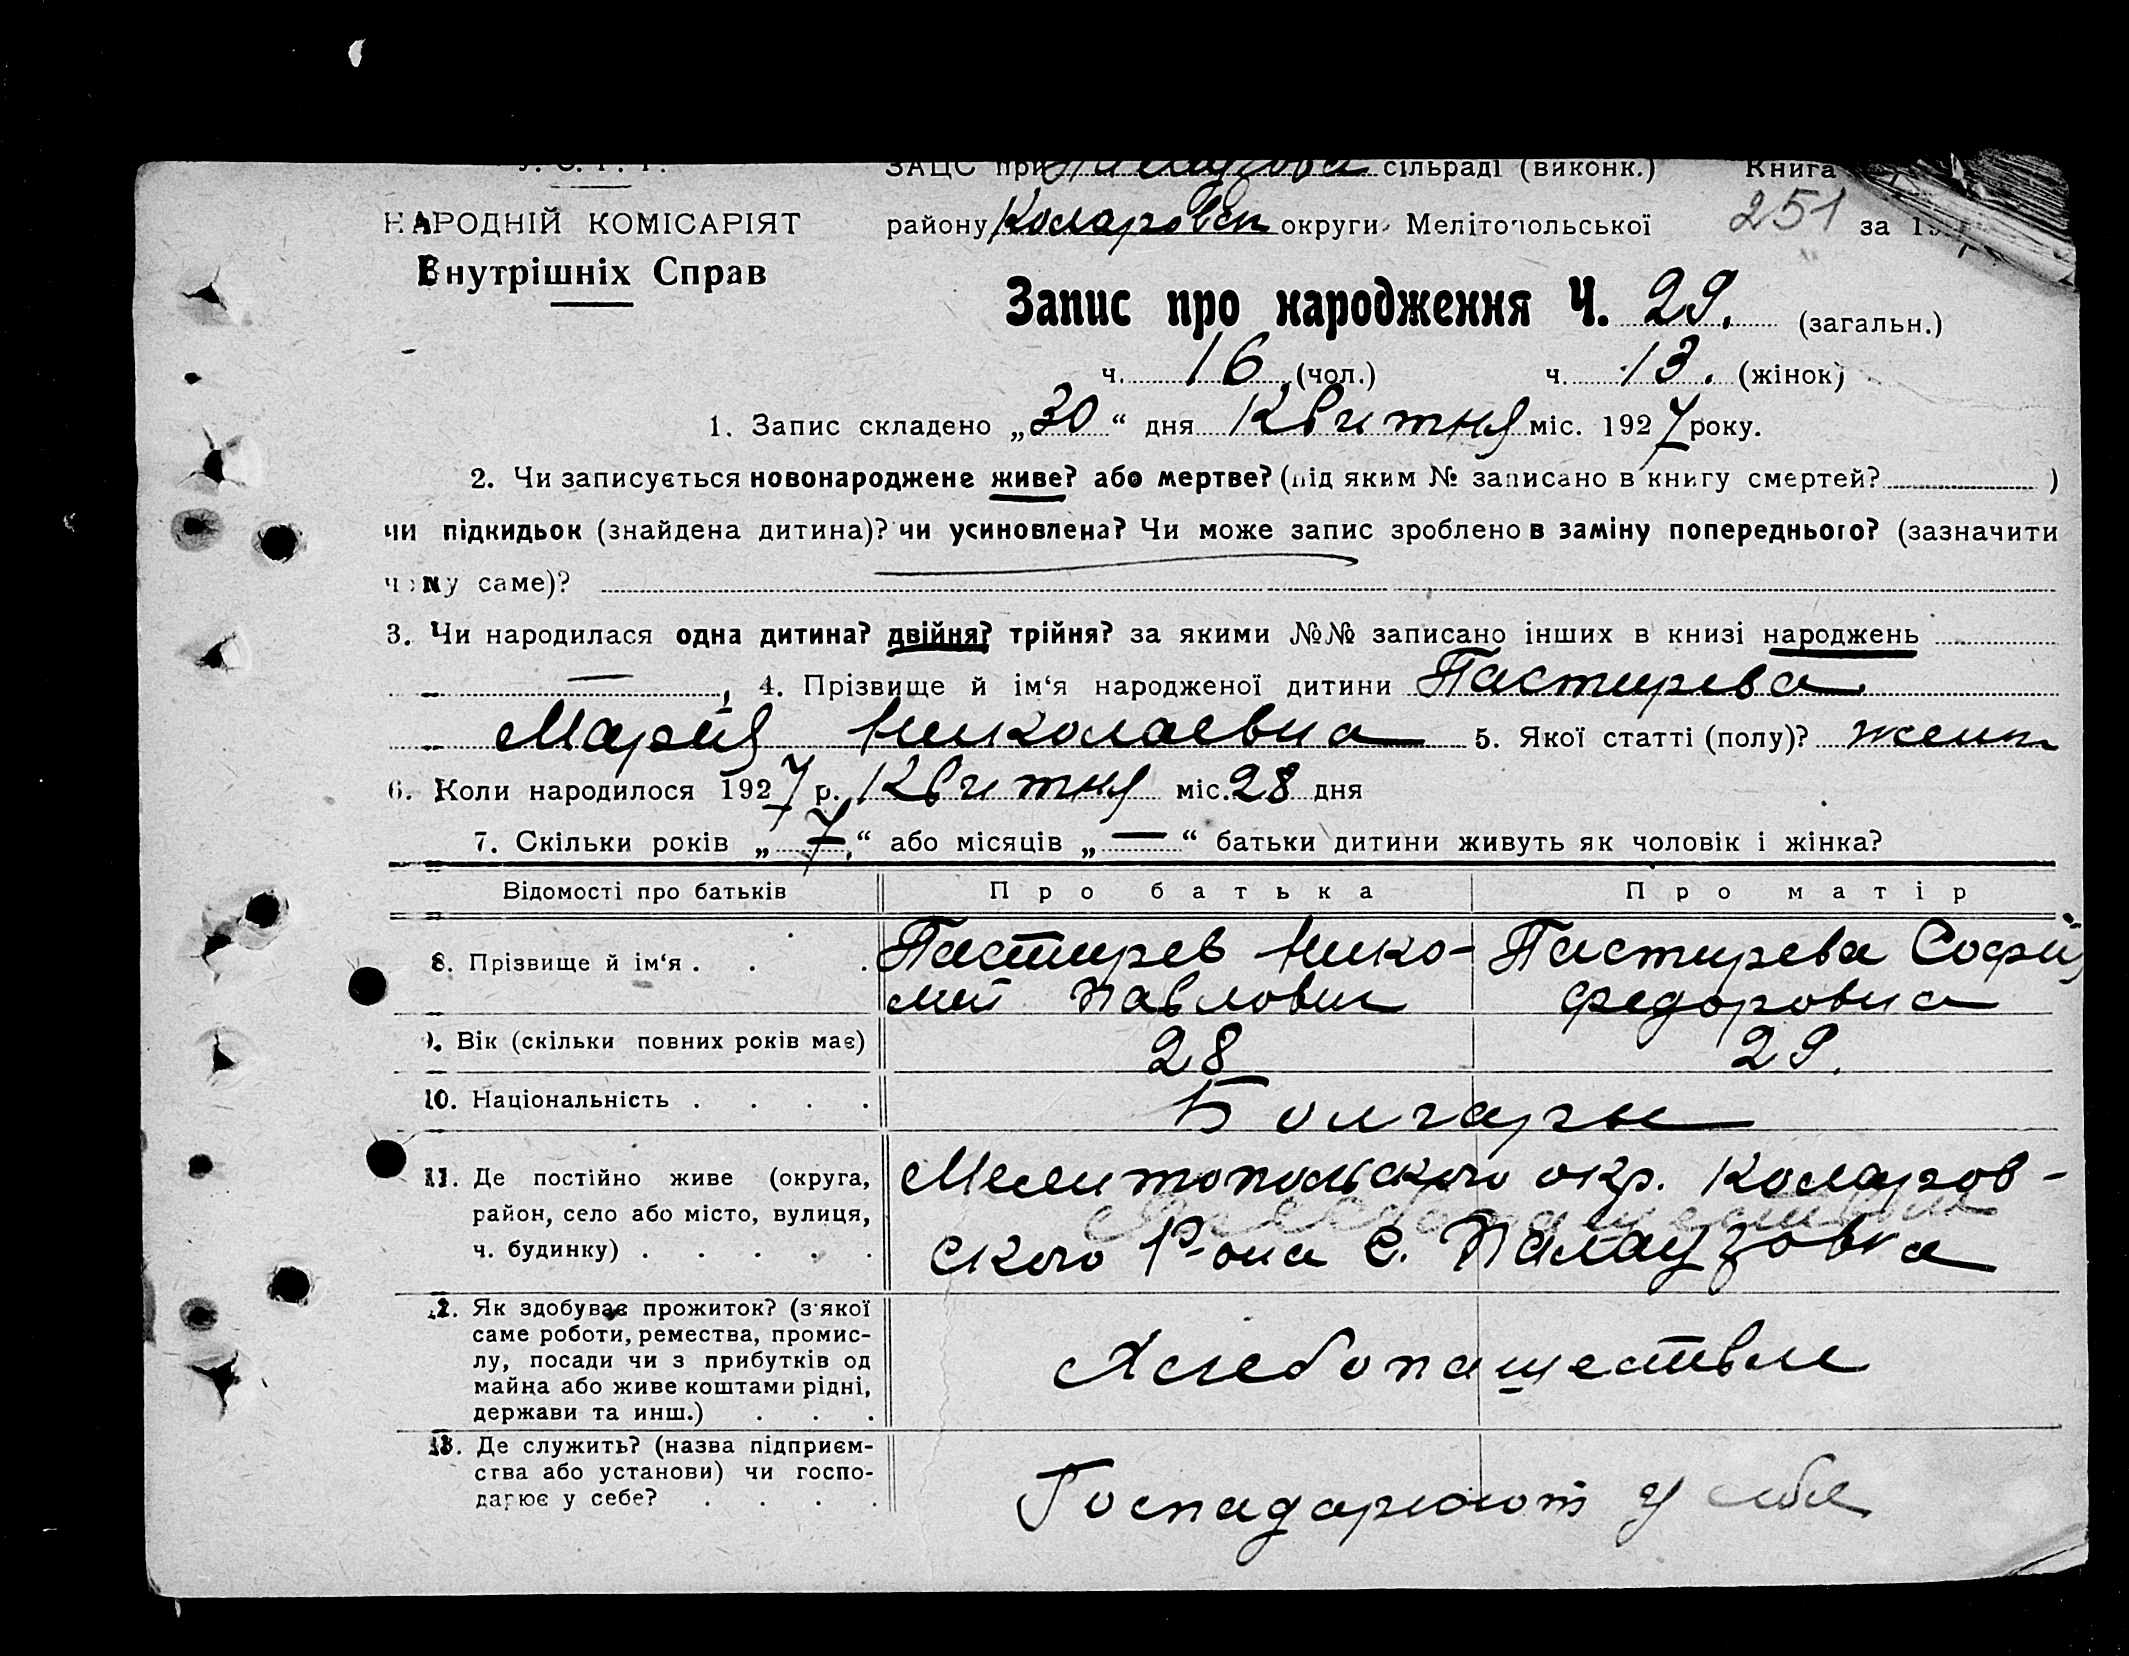 У. С. Р. Р. ЗАЦС при сільраді (виконк.) Книга
НАРОДНІЙ КОМІСАРІЯТ району Коларовск округи Мелітопольської 251 за 19
Внутрішніх Справ
Запис про народження Ч. 29. (загальн.)
ч. 16 (чол.) ч. 13. (жінок)
1. Запис складено „30“ дня Квитня міс. 1927 року.
2. Чи записується новонароджене живе? або мертве? (під яким № записано в книгу смертей? )
чи підкидьок (знайдена дитина)? чи усиновлена? Чи може запис зроблено в заміну попереднього? (зазначити
чому саме)?
3. Чи народилася одна дитина? двійня? трійня? за якими №№ записано інших в книзі народжень
— , 4. Прізвище й ім‘я народженої дитини Пастирева
Мария Николаевна 5. Якої статті (полу)? женск
6. Коли народилося 1927 р. Квитня міс. 28 дня
7. Скільки років „7“ або місяців „—“ батьки дитини живуть як чоловік і жінка?
Відомості про батьків Про батька Про матір
8. Прізвище й ім‘я . . . Пастирев Нико- Пастирева София
лай Павлович Федоровна
9. Вік (скільки повних років має) 28 29.
10. Національність . . . . Болгары
11. Де постійно живе (округа, Мелитопольского окр. Коларов-
район, село або місто, вулиця,
ч. будинку) . . . . . ского Р-она С. Палаузовка
12. Як здобуває прожиток? (з якої
саме роботи, ремества, промис-
лу, посади чи з прибутків од Хлебопашеством
майна або живе коштами рідні,
держави та инш.) . . .
13. Де служить? (назва підприєм-
ства або установи) чи госпо- Господарюют у себе
дарює у себе? . . . .